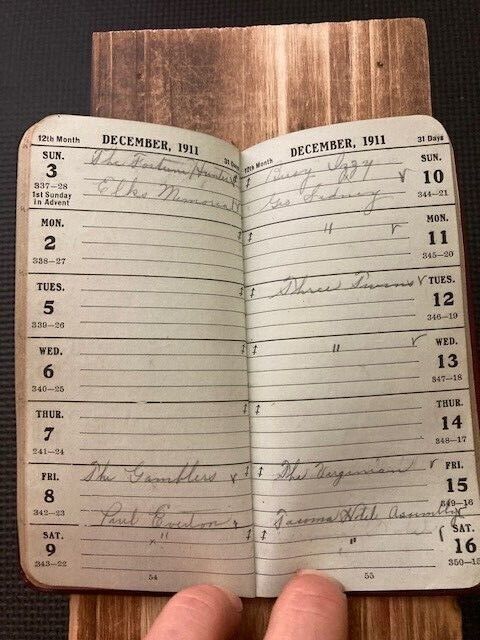 12th Month DECEMBER, 1911 31 Days
SUN. 3 337—28 1st Sunday in Advent
The Fortune Hunter
Elks Memorial
MON. 2 338—27
TUES. 5 339—26
WED. 6 340—25
THUR. 7 241—24
FRI. 8 342—23
The Gamblers
Paul Everton
SAT. 9 343—22
"
54
12th Month DECEMBER, 1911 31 Days
SUN. 10 344—21
Busy Izzy
Geo Sidney
MON. 11 345—20
"
TUES. 12 346—19
Three Twins
WED. 13 347—18
"
THUR. 14 348—17
FRI. 15 349—16
The Virginian
Tacoma Hotel Assembly
SAT. 16 350—15
"
55